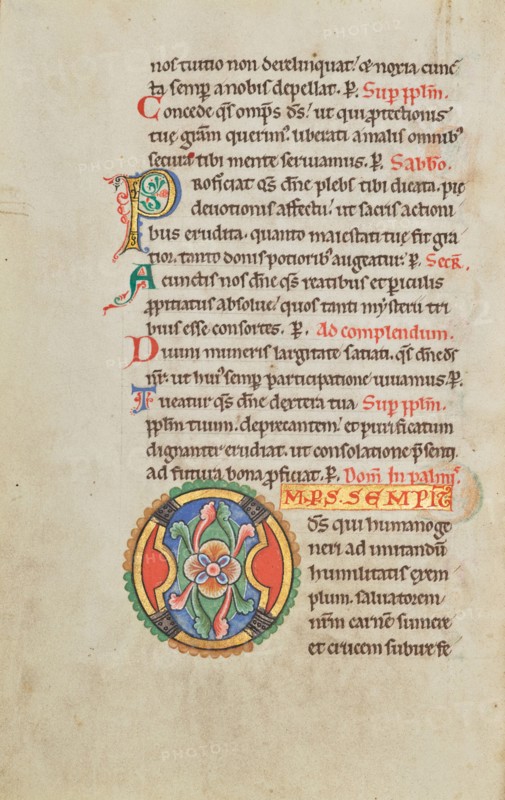 nos tuitio non derelinquat. & noxia cunc
ta semp a nobis depellat. P. Sup pplm.
Concede qs omps ds. ut qui ptectionis
tuę grām querim⁹. liberati a malis omnib⁹
secura tibi mente seruiamus. P. Sabbo.
Roficiat qs dne plebs tibi dicata. pię
deuotionis affectu. ut sacris actioni
bus erudita. quanto maiestati tuę fit gra
tior. tanto donis potiorib augeatur. P. Secr.
A cunctis nos dne qs reatibus et piculis
ppitiatus absolue. quos tanti mysterii tri
buis esse consortes. P. Ad complendum.
Diuini muneris largitate satiati. qs dne ds
nr. ut hui⁹ semp participatione uiuamus. P.
Tueatur qs dne dextera tua Sup pplm.
pplm tuum. deprecantem. et purificatum
dignanter erudiat. ut consolatione psenti.
ad futura bona pficiat. P. Dom In palmis
MPS. SEMPIT
ds qui humano ge
neri ad imitandū
humilitatis exem
plum. saluatorem
nrm carnē sumere
et crucem subire fe